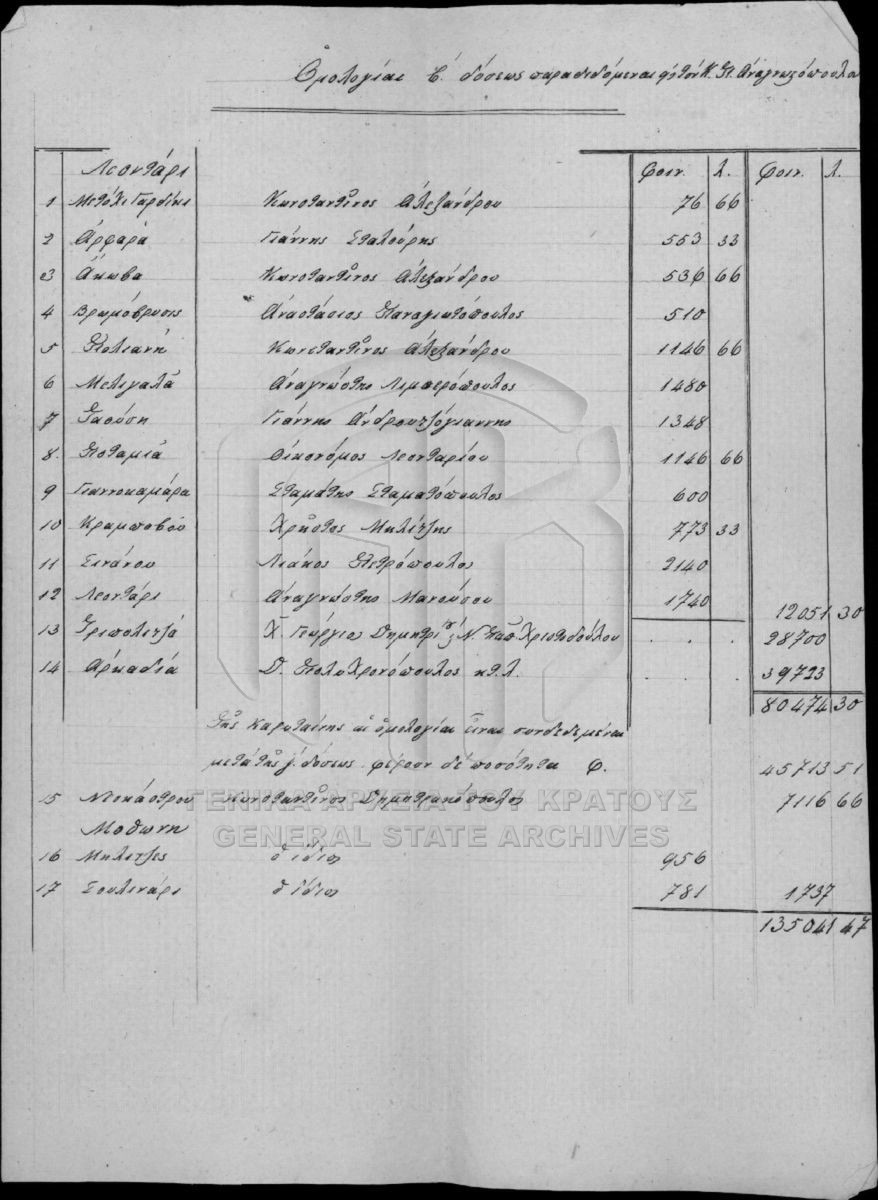 Ὁμολογίαι β΄. δόσεως παραδιδόμεναι
Λεοντάρι φοιν. λ. φοιν. λ.
1 Μετόχι Γαρδίκι Κωνσταντῖνος Ἀλεξάνδρου 76 66
2 Ἀρφαρά Γιάννης 553 33
3 Ἄκωβα Κωνσταντῖνος Ἀλεξάνδρου 536 66
4 Βρωμόβρυσις Ἀναστάσιος Παναγιωτόπουλος 510
5 Πολιανή Κωνσταντῖνος Ἀλεξάνδρου 1146 66
6 Μελιγαλᾶ Ἀναγνώστης Λιμπερόπουλος 1480
7 Γιάννης Ἀνδρουτζόγιαννης 1348
8. Ποταμιά Οἰκονόμος Λεονταρίου 1146 66
9 Γιαννοκαμάρα Σταμάτης Σταματόπουλος 600
10 Κραμποβοῦ Χρῆστος Μηλίτζης 773 33
11 Σινάνου Λιάκος Πετρόπουλος 2140
12 Λεοντάρι Ἀναγνώστης Μανούσου 1740 12051 30
13 Τριπολιτζά Χ. Γεώργιος Δημητρίου Ν. Παπ. Χριστοδούλου . . 28700
14 Ἀρκαδιά Δ. Πολυχρονόπουλος κτλ. . . 39723
80474 30
Τῆς Καρυταίνης αἱ ὁμολογίαι εἶναι συνδεδεμέναι
μετὰ τῆς γ΄. δόσεως. φέρουν δὲ ποσότητα φ. 45713 51
15 Νεοκάστρου Κωνσταντῖνος Δημητρακόπουλος 7116 66
Μοθώνη
16 Μηλίτζες ὁ ἴδιος 956
17 Σουλινάρι ὁ ἴδιος 781 1737
135041 47
ΓΕΝΙΚΑ ΑΡΧΕΙΑ ΤΟΥ ΚΡΑΤΟΥΣ
GENERAL STATE ARCHIVES